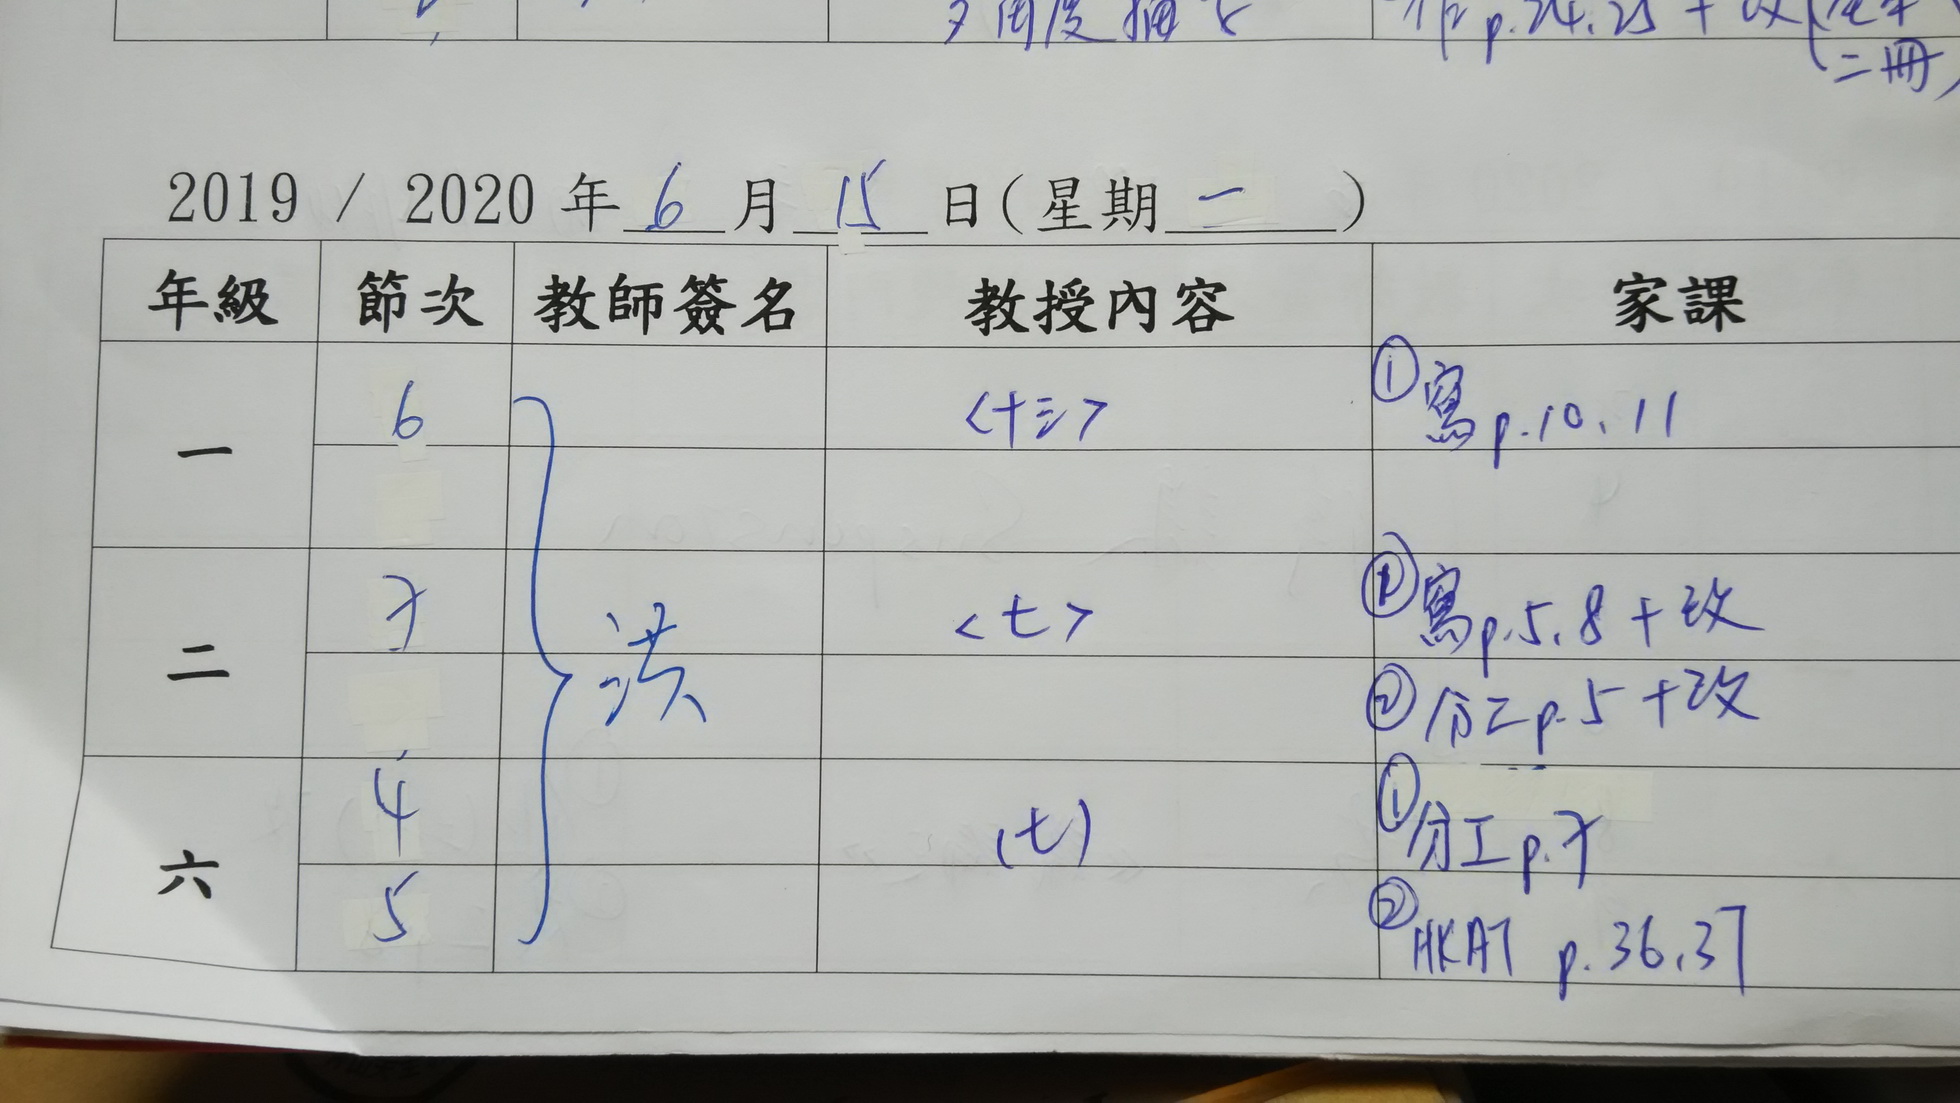 p.24.25+改
二冊)
2019 / 2020 年 6 月 15 日(星期 一 )
年級 節次 教師簽名 教授內容 家課
一 6 <十三> ①寫p.10、11
二 7 洪 <七> ①寫p.5、8+改
②分工p.5+改
六 4 (七) ①分工p.7
5 ②HKAT p.36、37